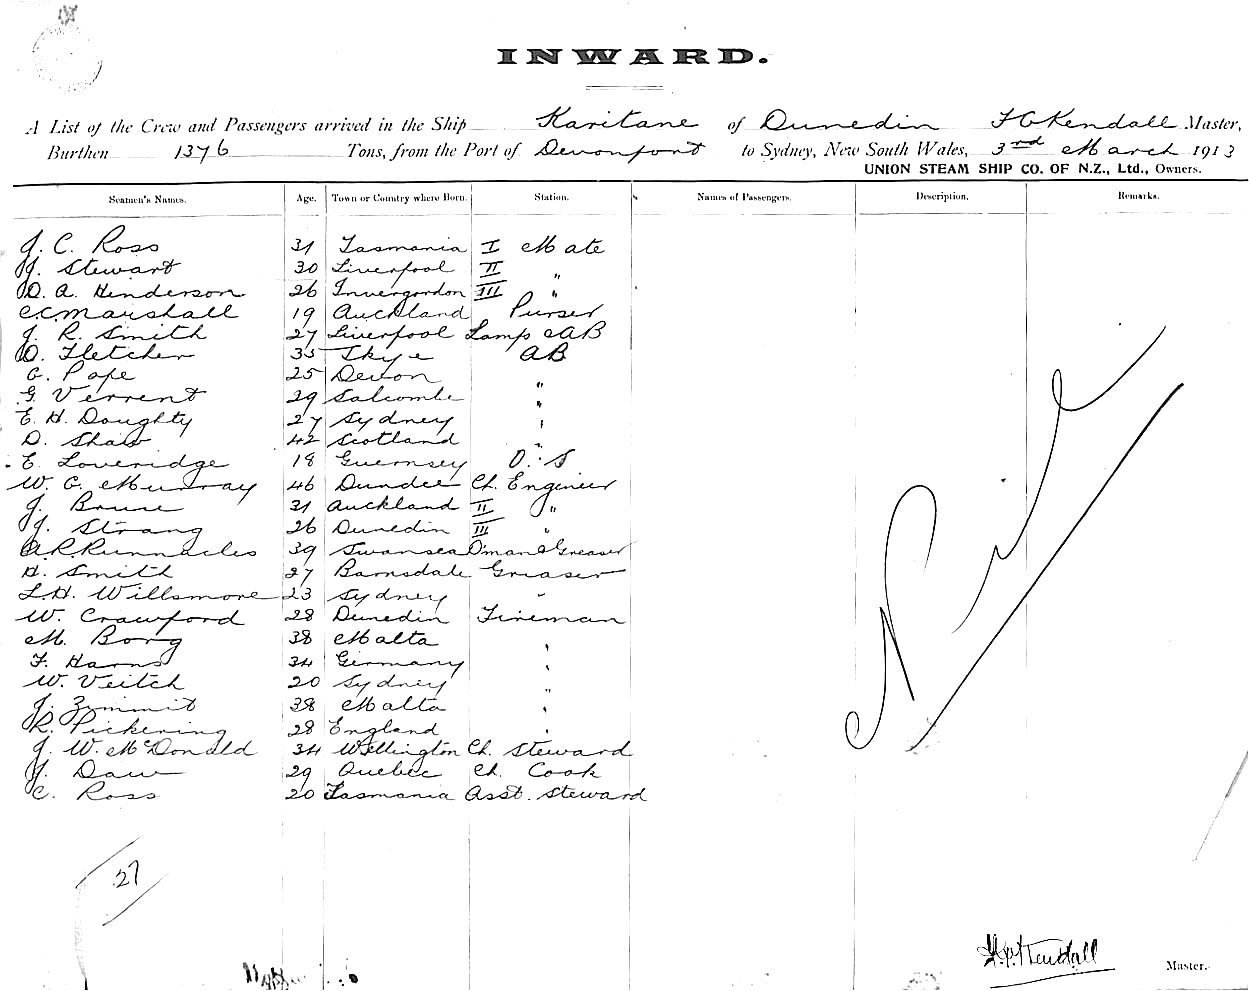 INWARD.
A List of the Crew and Passengers arrived in the Ship Karitane of Dunedin F C Kendall Master,
Burthen 1376 Tons, from the Port of Devonport to Sydney, New South Wales, 3rd March 1913
UNION STEAM SHIP CO. OF N.Z., Ltd., Owners.
Seamen's Names. Age. Town or Country where Born. Station. Names of Passengers. Description. Remarks.
J. C. Ross 31 Tasmania I Mate
J. Stewart 30 Liverpool II "
D. A. Henderson 26 Invergordon III "
C. C. Marshall 19 Auckland Purser
J. R. Smith 27 Liverpool Lamp & AB
D. Fletcher 35 Skye AB
C. Pope 25 Devon "
G. Verrent 29 Salcombe "
E. H. Doughty 27 Sydney "
D. Shaw 42 Scotland "
E. Loveridge 18 Guernsey O. S
W. G. Murray 46 Dundee Ch. Engineer
J. Brune 31 Auckland II "
J. Strang 26 Dunedin III "
A. R. Runnacles 39 Swansea D'man & Greaser
H. Smith 27 Barnsdale Greaser
L. H. Willsmore 23 Sydney "
W. Crawford 28 Dunedin Fireman
M. Borg 38 Malta "
F. Harns 34 Germany "
W. Veitch 20 Sydney "
J. Zimmit 38 Malta "
R. Pickering 28 England "
J. W. McDonald 34 Wellington Ch. Steward
J. Daw 29 Quebec Ch. Cook
C. Ross 20 Tasmania Asst. Steward
Nil
27
Kendall
Master.